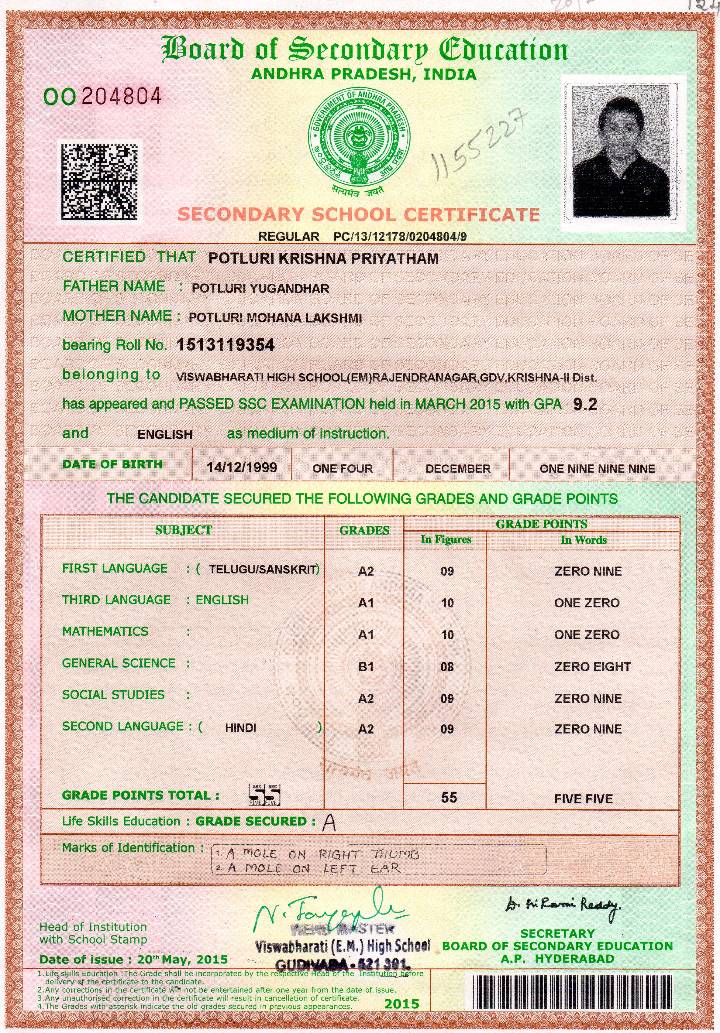 Board of Secondary Education
ANDHRA PRADESH, INDIA
OO 204804
GOVERNMENT OF ANDHRA PRADESH
सत्यमेव जयते
1155227
SECONDARY SCHOOL CERTIFICATE
REGULAR PC/13/12178/0204804/9
CERTIFIED THAT POTLURI KRISHNA PRIYATHAM
FATHER NAME : POTLURI YUGANDHAR
MOTHER NAME : POTLURI MOHANA LAKSHMI
bearing Roll No. 1513119354
belonging to VISWABHARATI HIGH SCHOOL(EM)RAJENDRANAGAR,GDV,KRISHNA-II Dist.
has appeared and PASSED SSC EXAMINATION held in MARCH 2015 with GPA 9.2
and ENGLISH as medium of instruction.
DATE OF BIRTH 14/12/1999 ONE FOUR DECEMBER ONE NINE NINE NINE
THE CANDIDATE SECURED THE FOLLOWING GRADES AND GRADE POINTS
SUBJECT GRADES GRADE POINTS
In Figures In Words
FIRST LANGUAGE : ( TELUGU/SANSKRIT) A2 09 ZERO NINE
THIRD LANGUAGE : ENGLISH A1 10 ONE ZERO
MATHEMATICS : A1 10 ONE ZERO
GENERAL SCIENCE : B1 08 ZERO EIGHT
SOCIAL STUDIES : A2 09 ZERO NINE
SECOND LANGUAGE : ( HINDI ) A2 09 ZERO NINE
GRADE POINTS TOTAL : 55 55 FIVE FIVE
Life Skills Education : GRADE SECURED : A
Marks of Identification : 1. A MOLE ON RIGHT THUMB
2 A MOLE ON LEFT EAR
Head of Institution
with School Stamp
HEAD MASTER
Viswabharati (E.M.) High School
GUDIVADA - 521 301.
SECRETARY
BOARD OF SECONDARY EDUCATION
A.P. HYDERABAD
Date of issue : 20th May, 2015
1. Life skills Education :The Grade shall be incorporated by the respective Head of the Institution before
delivery of the certificate to the candidate.
2. Any corrections in the certificate will not be entertained after one year from the date of issue.
3. Any unauthorised correction in the certificate will result in cancellation of certificate.
4. The Grades with asterisk indicate the old grades secured in previous appearances.
2015